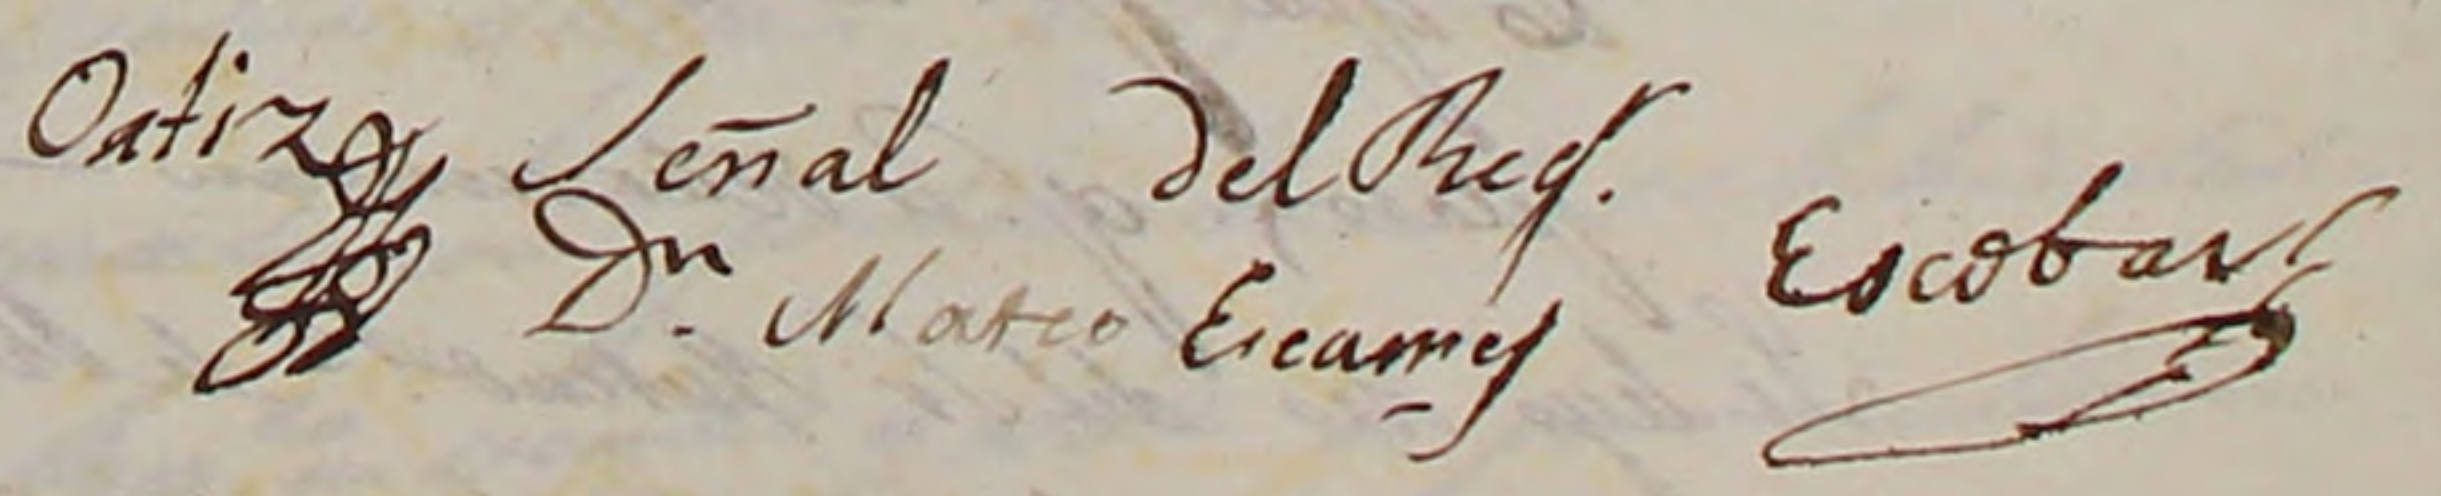 Ortiz Señal del Reg.
Dn. Mateo Escames Escobar